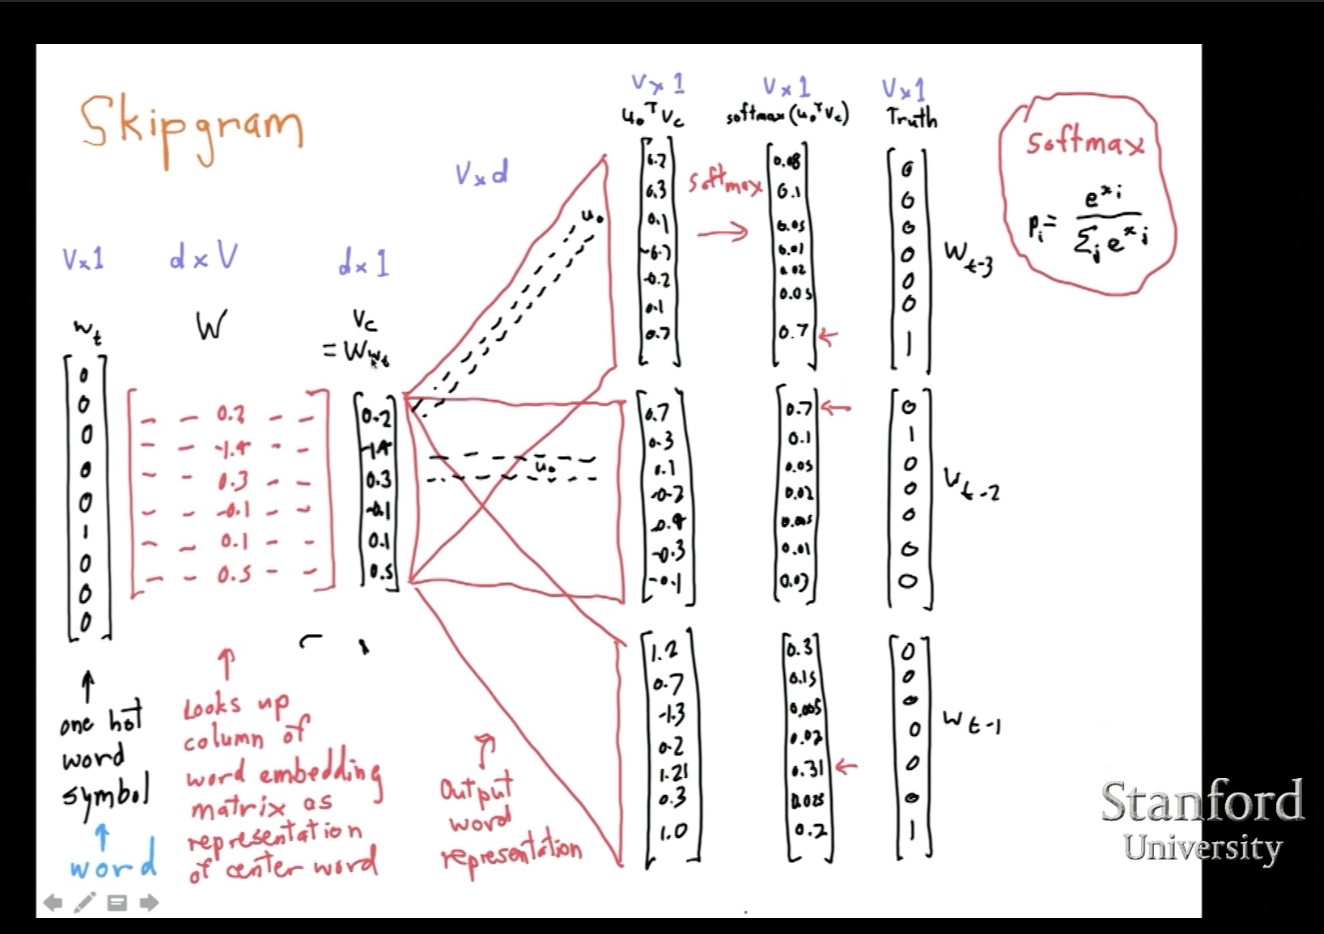 Skipgram
V×1
w_t
0
0
0
0
0
1
0
0
0
one hot
word
symbol
word
d×V
W
0.2
-1.4
0.3
-0.1
0.1
0.5
Looks up
column of
word embedding
matrix as
representation
of center word
d×1
V_c
= W_{w_t}
0.2
-1.4
0.3
-0.1
0.1
0.5
V×d
u_o
u_o
Output
word
representation
V×1
u_o^T V_c
0.3
0.1
-0.2
0.1
0.7
0.7
0.3
0.1
-0.2
-0.3
-0.1
1.2
0.7
-1.3
0.2
1.21
0.3
1.0
softmax
V×1
softmax(u_o^T V_c)
0.1
0.05
0.01
0.02
0.05
0.7
0.7
0.1
0.05
0.02
0.01
0.03
0.3
0.15
0.005
0.02
0.31
0.2
V×1
Truth
0
0
0
0
0
0
1
W_{t-3}
0
1
0
0
0
0
0
W_{t-2}
0
0
0
0
0
0
1
W_{t-1}
softmax
p_i = e^{x_i} / Σ_j e^{x_j}
Stanford
University